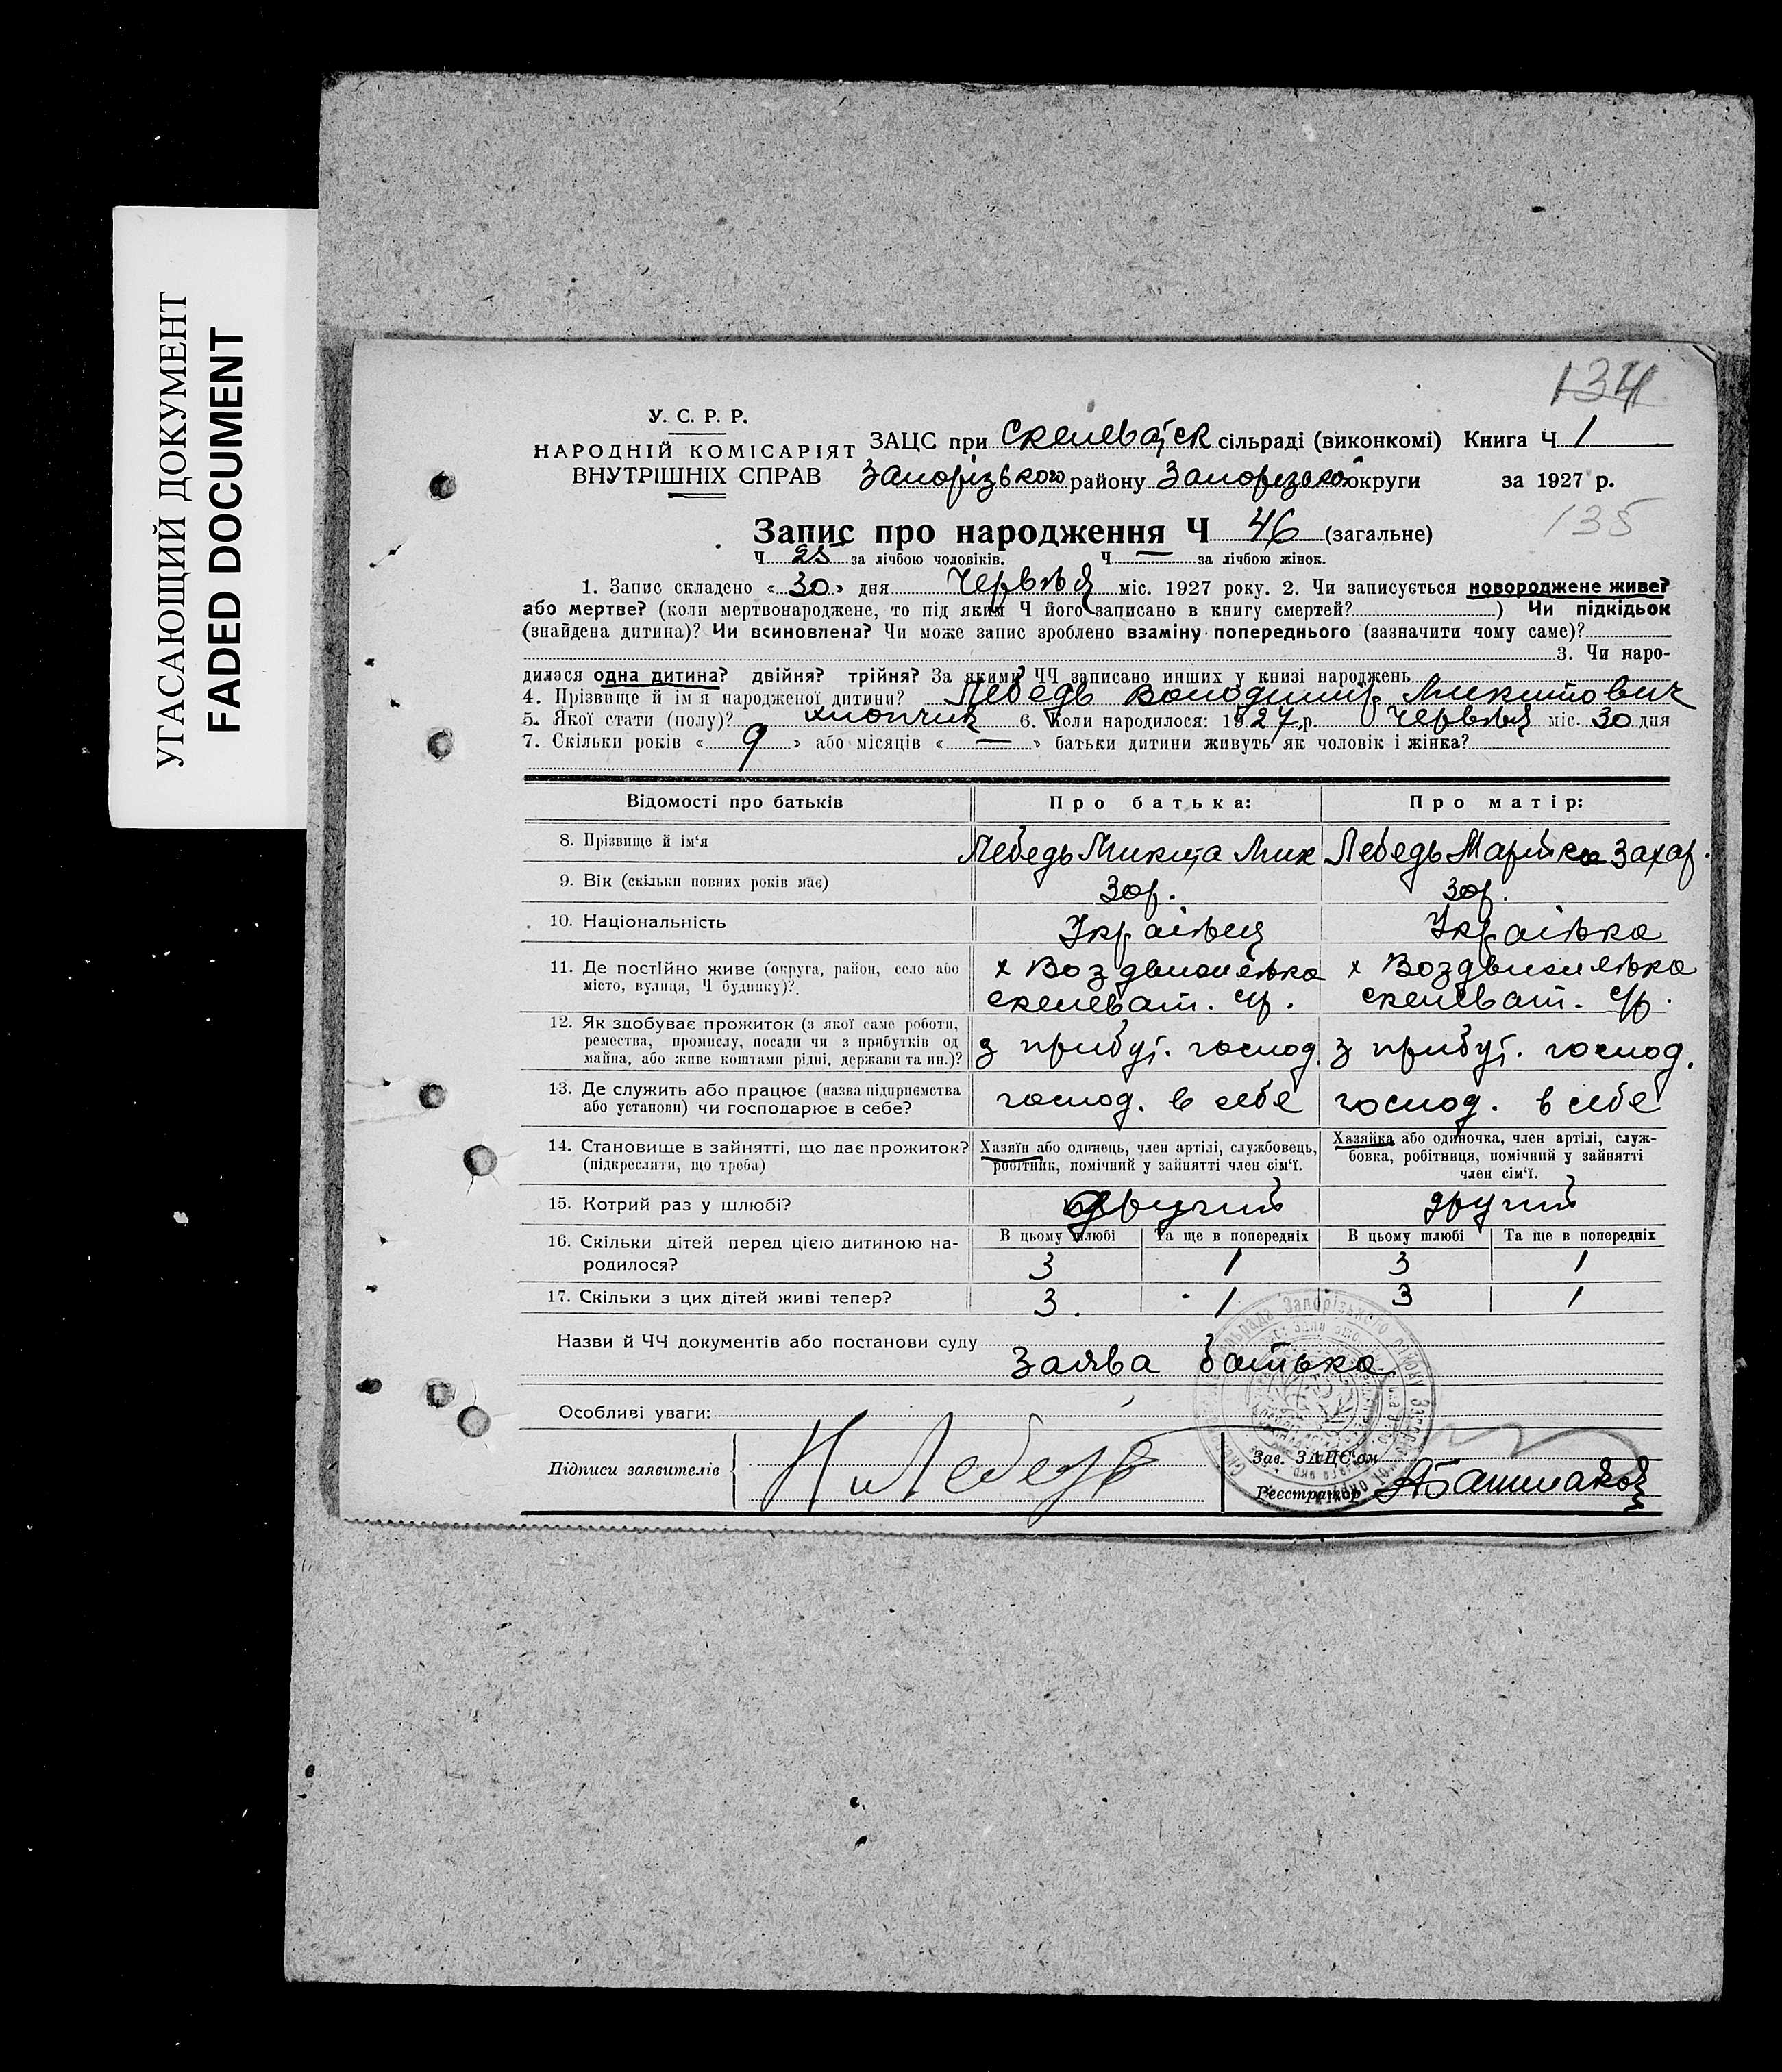 УГАСАЮЩИЙ ДОКУМЕНТ
FADED DOCUMENT
134
У. С. Р. Р.
НАРОДНІЙ КОМІСАРІЯТ
ВНУТРІШНІХ СПРАВ
ЗАЦС при Скелеватск сільраді (виконкомі) Книга Ч 1
Запорізького району Запорізької округи за 1927 р.
135
Запис про народження Ч 46 (загальне)
Ч 25 за лічбою чоловіків. Ч — за лічбою жінок.
1. Запис складено « 30 » дня Червня міс. 1927 року. 2. Чи записується новороджене живе?
або мертве? (коли мертвонароджене, то під яким Ч його записано в книгу смертей? ) Чи підкідьок
(знайдена дитина)? Чи всиновлена? Чи може запис зроблено взаміну попереднього (зазначити чому саме)?
3. Чи наро-
дилася одна дитина? двійня? трійня? За якими ЧЧ записано инших у книзі народжень
4. Прізвище й ім'я народженої дитини? Лебедь Володимір Микитович
5. Якої стати (полу)? хлопчик 6. Коли народилося: 1927 р. Червня міс. 30 дня
7. Скільки років « 9 » або місяців « — » батьки дитини живуть як чоловік і жінка?
Відомості про батьків Про батька: Про матір:
8. Прізвище й ім'я Лебедь Микита Мик Лебедь Марійка Захар.
9. Вік (скільки повних років має) 30р. 30р.
10. Національність Українець Українка
11. Де постійно живе (округа, район, село або
місто, вулиця, Ч будинку)?
х Воздвиженька х Воздвиженька
скелеват. с/р. скелеват. с/р.
12. Як здобуває прожиток (з якої саме роботи,
ремества, промислу, посади чи з прибутків од
майна, або живе коштами рідні, держави та ин.)?
з прибут. господ. з прибут. господ.
13. Де служить або працює (назва підприємства
або установи) чи господарює в себе?
господ. в себе господ. в себе
14. Становище в зайнятті, що дає прожиток?
(підкреслити, що треба)
Хазяїн або одинець, член артілі, службовець,
робітник, помічний у зайнятті член сім'ї.
Хазяйка або одиночка, член артілі, служ-
бовка, робітниця, помічний у зайнятті
член сім'ї.
15. Котрий раз у шлюбі? другий другий
16. Скільки дітей перед цією дитиною на-
родилося?
В цьому шлюбі Та ще в попередніх В цьому шлюбі Та ще в попередніх
3 1 3 1
17. Скільки з цих дітей живі тепер? 3 1 3 1
Назви й ЧЧ документів або постанови суду
Заява батька
Особливі уваги:
Підписи заявителів Н Лебедь
Зав. ЗАЦС'ом
Реєстратор АБашмаков